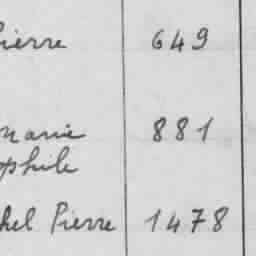 Pierre 649
Marie 881
ophile
chel Pierre 1478